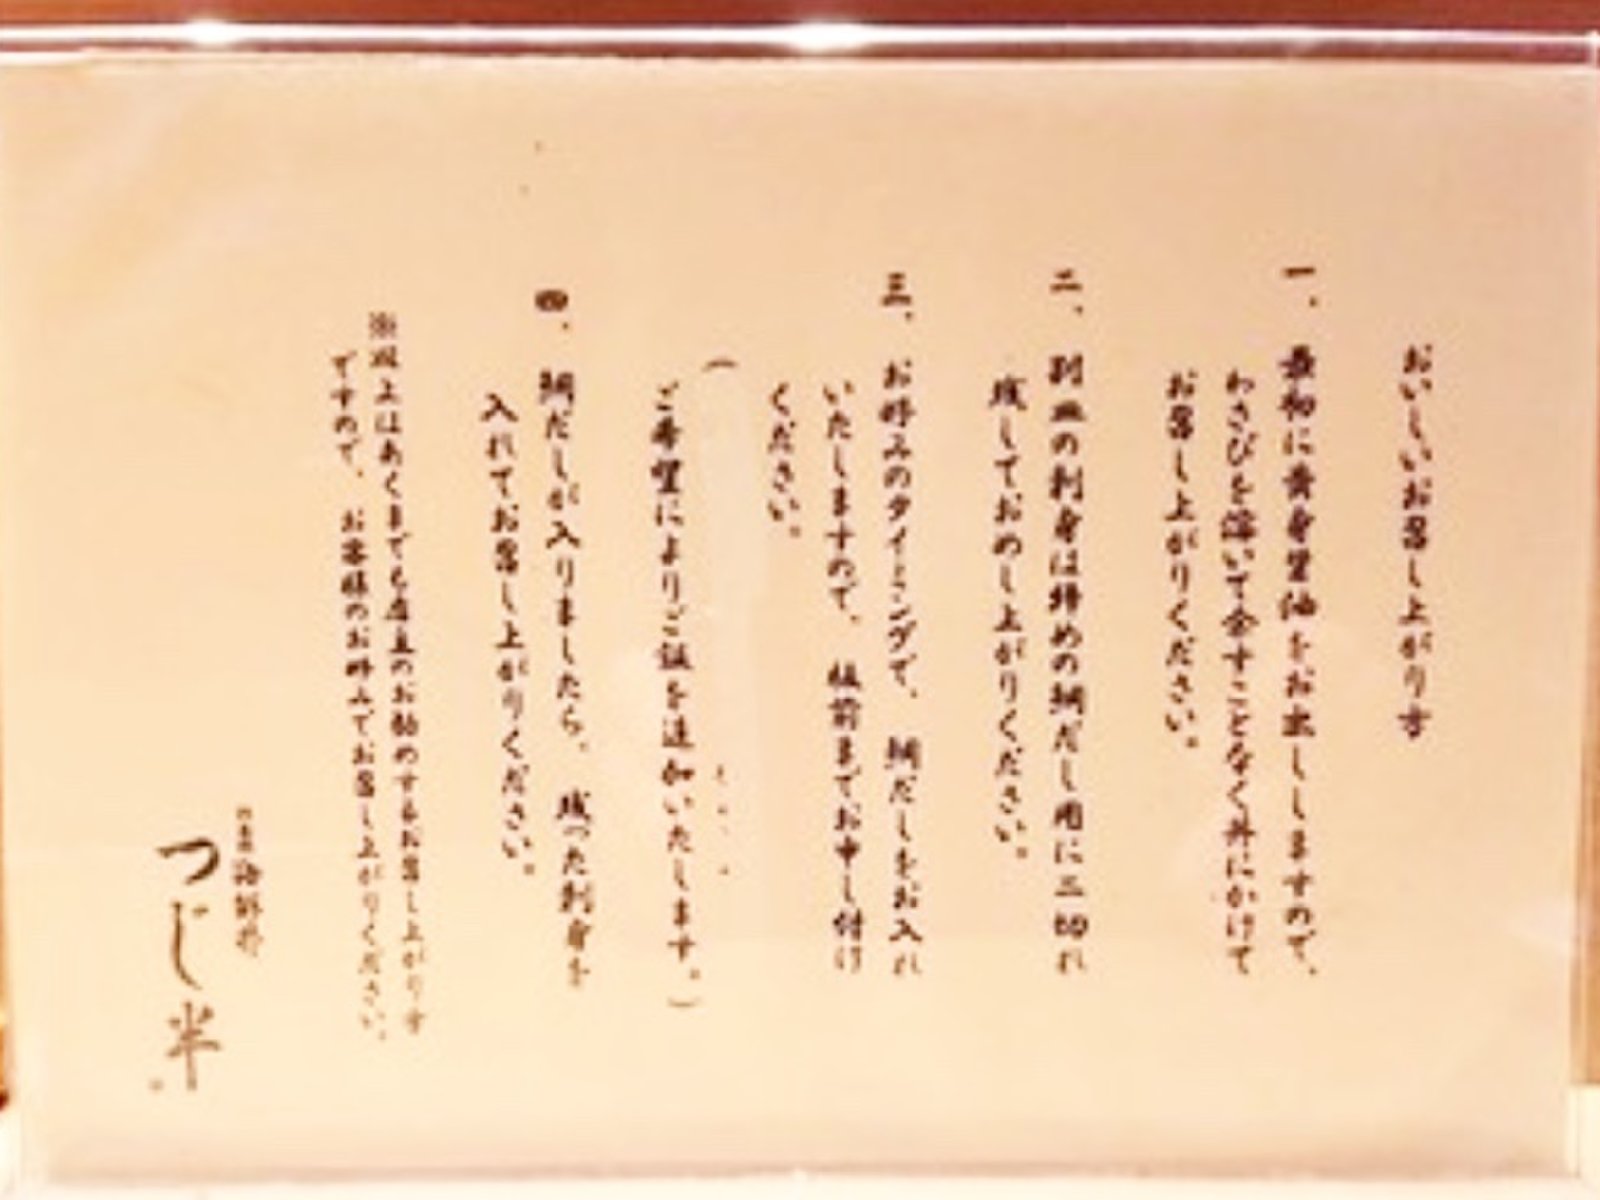 おいしいお召し上がり方
一、最初に黄身醤油をお出ししますので、
わさびを溶いて余すことなく丼にかけて
お召し上がりください。
二、別皿の刺身は締めの鯛だし用に二切れ
残しておめし上がりください。
三、お好みのタイミングで、鯛だしをお入れ
いたしますので、板前までお申し付け
ください。
(
ご希望によりご飯を追加いたします。)
四、鯛だしが入りましたら、残った刺身を
入れてお召し上がりください。
※以上はあくまでも店主のお勧めするお召し上がり方
ですので、お客様のお好みでお召し上がりください。
海鮮丼
つじ半